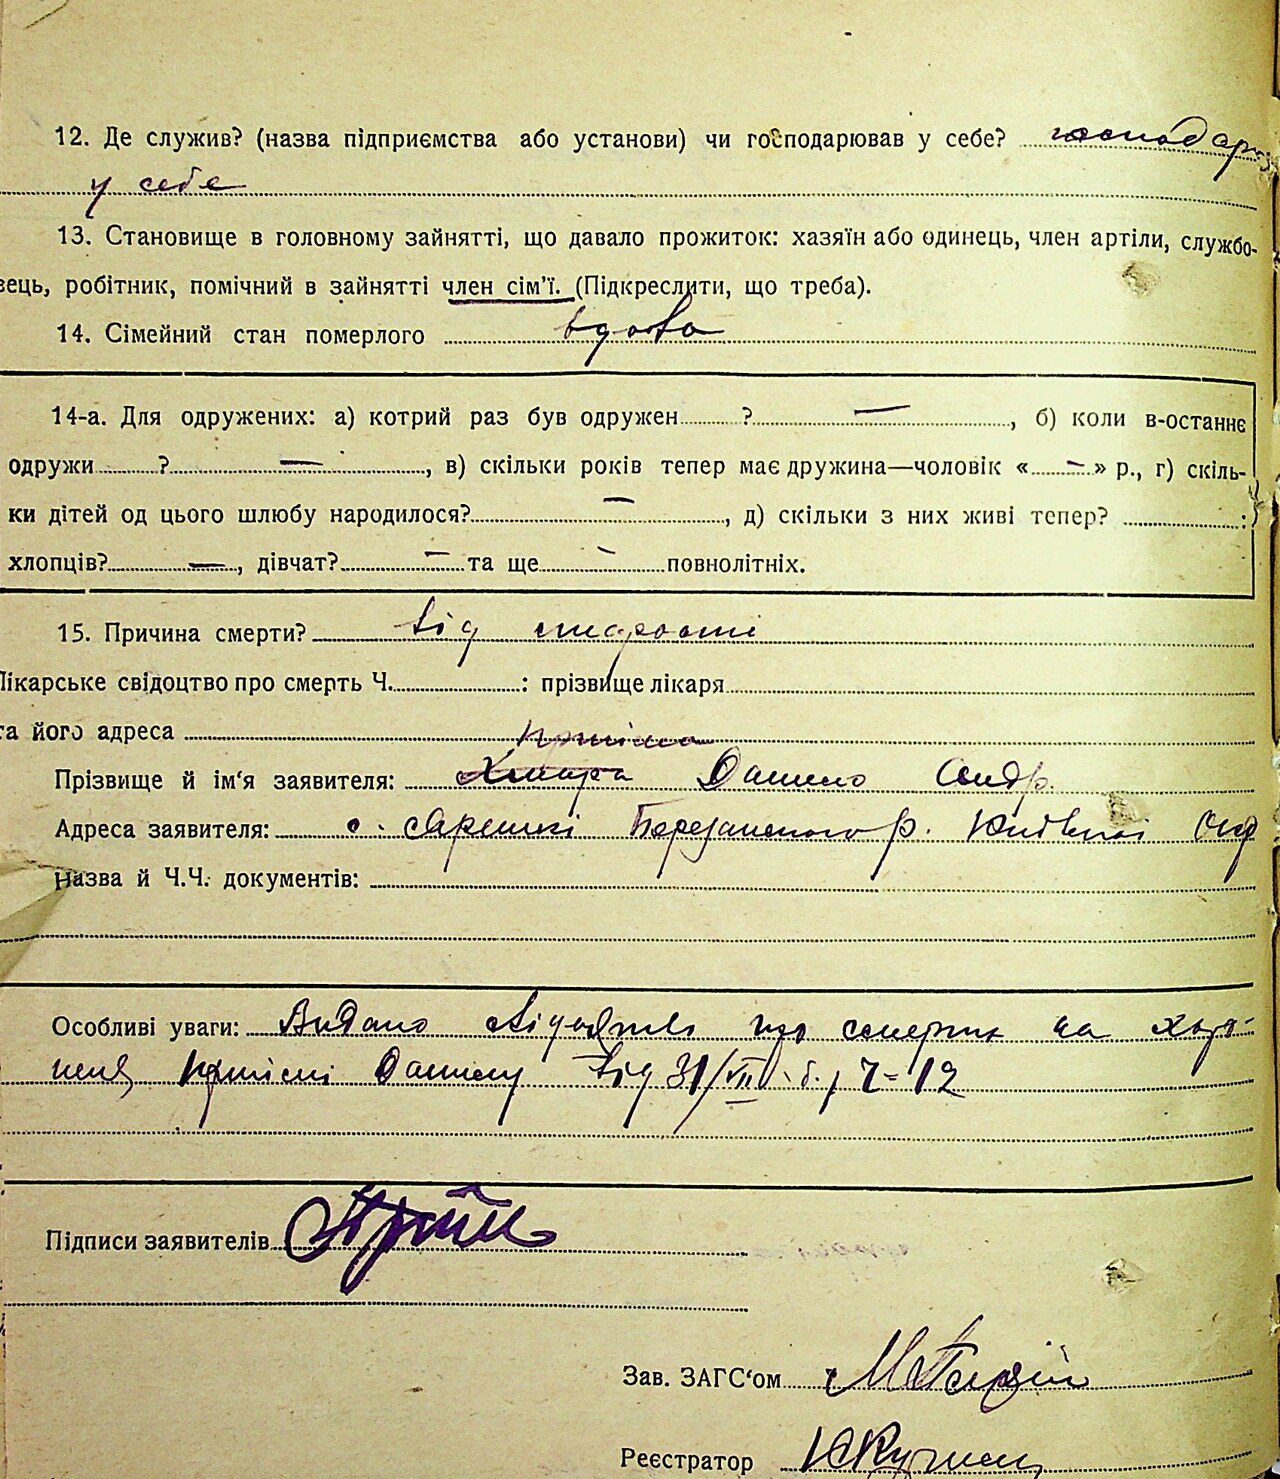 12. Де служив? (назва підприємства або установи) чи господарював у себе? господарюв
у себе
13. Становище в головному зайнятті, що давало прожиток: хазяїн або одинець, член артіли, службо-
вець, робітник, помічний в зайнятті член сім'ї. (Підкреслити, що треба).
14. Сімейний стан померлого вдова
14-а. Для одружених: а) котрий раз був одружен ? —, б) коли в-останнє
одружи ? —, в) скільки років тепер має дружина—чоловік « – » р., г) скіль-
ки дітей од цього шлюбу народилося? —, д) скільки з них живі тепер? :
хлопців? —, дівчат? — та ще — повнолітніх.
15. Причина смерти? від старости
Лікарське свідоцтво про смерть Ч. : прізвище лікаря
та його адреса
Прізвище й ім'я заявителя: Данило
Адреса заявителя: с. Ярешкі Березанського р. Київської Окр
Назва й Ч.Ч. документів:
Особливі уваги: Видано про смерть на
Данилу від 31/VII б. р. Ч= 12
Підписи заявителів
Зав. ЗАГС'ом
Реєстратор